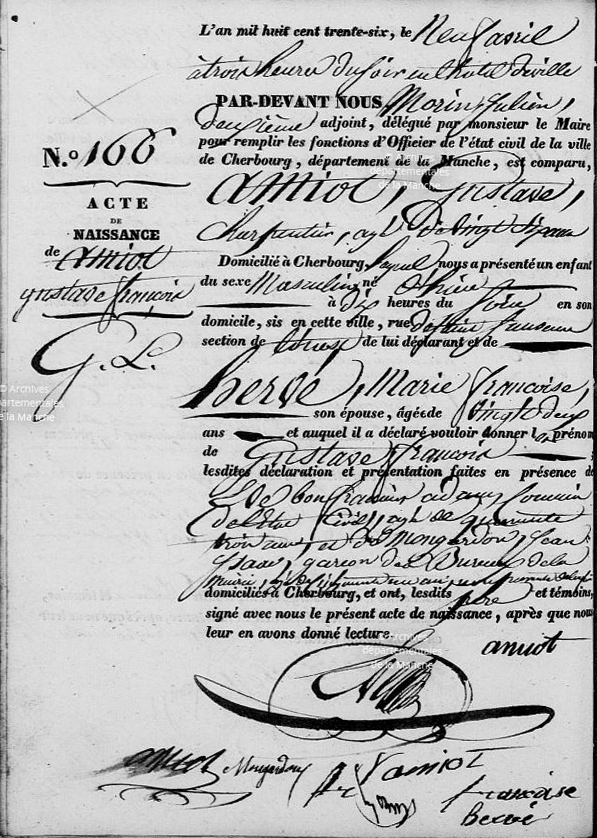 L'an mil huit cent trente-six, le Neuf avril
à trois heures du soir en l'hotel de ville
PAR-DEVANT NOUS, Morin, Julien,
deuxième adjoint, délégué par monsieur le Maire
pour remplir les fonctions d'Officier de l'état civil de la ville
de Cherbourg, département de la Manche, est comparu,
Amiot, Gustave,
Charpentier, agé de vingt six ans
N.o 166
ACTE
DE
NAISSANCE
de Amiot
gustave françois
G. L.
Domicilié à Cherbourg, lequel nous a présenté un enfant
du sexe Masculin né hier
à dix heures du soir en son
domicile, sis en cette ville, rue
section de de lui déclarant et de
hervé, Marie françoise,
son épouse, âgée de vingt deux
ans et auquel il a déclaré vouloir donner les prénom
de Gustave françois ;
lesdites déclaration et présentation faites en présence de
de bon françois
de l'état Civil, agé de quarante
trois ans, et de Mongardon, Jean
Isaac, garçon des Bureaux de la
Mairie, agé de
domiciliés à Cherbourg, et ont, lesdits père et témoins,
signé avec nous le présent acte de naissance, après que nous
leur en avons donné lecture.
amiot
amiot Mongardon
Vamiot
françoise
hervé
© Archives
départementales
de la Manche
Archives
départementales
de la Manche
départementales
de la Manche